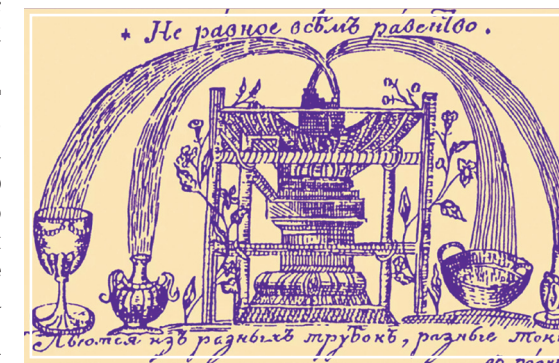 Не равное всѣмъ равенство.
Льются изъ разныхъ трубокъ, разные ток